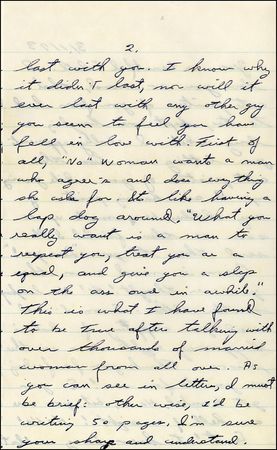 2.
last with you. I know why
it didn't last, nor will it
ever last with any other guy
you seem to feel you have
fell in love with. First of
all, "No" Woman wants a man
who agree's and does everything
she asks for. Its like having a
lap dog around. "What you
really want is a man to
respect you, treat you as a
equal, and give you a slap
on the ass once in awhile."
This is what I have found
to be true after talking with
over thousands of married
woman from all over. As
you can see in letter, I must
be brief: other wise, I'd be
writing 50 pages, I'm sure
your sharp and understand.